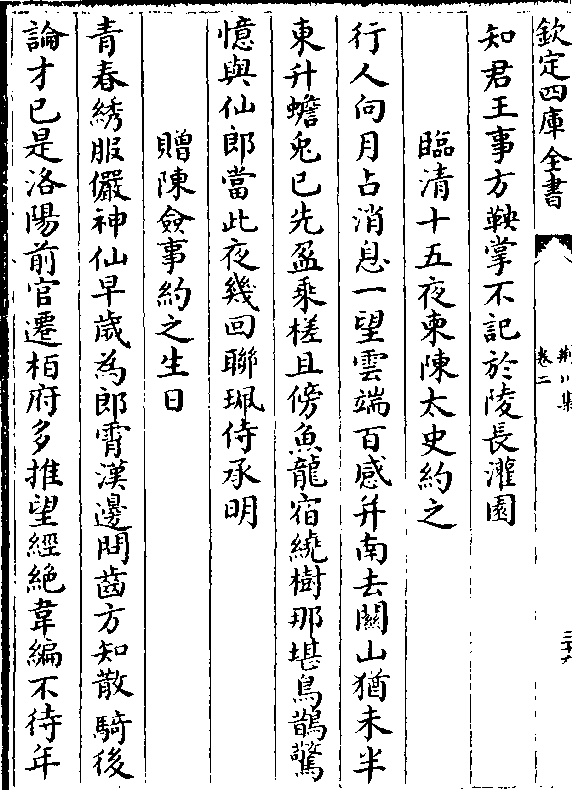 欽定四庫全書
荆川集
卷二
知君王事方鞅掌不記於陵長灌園
臨清十五夜柬陳太史約之
行人向月占消息一望雲端百感并南去關山猶未半
東升蟾兎已先盈乘槎且傍魚龍宿繞樹那堪鳥鵲驚
憶與仙郎當此夜幾回聯珮侍承明
贈陳僉事約之生日
青春綉服儼神仙早歳為郎霄漢邊問齒方知散騎後
論才已是洛陽前官遷栢府多推望經絶韋編不待年